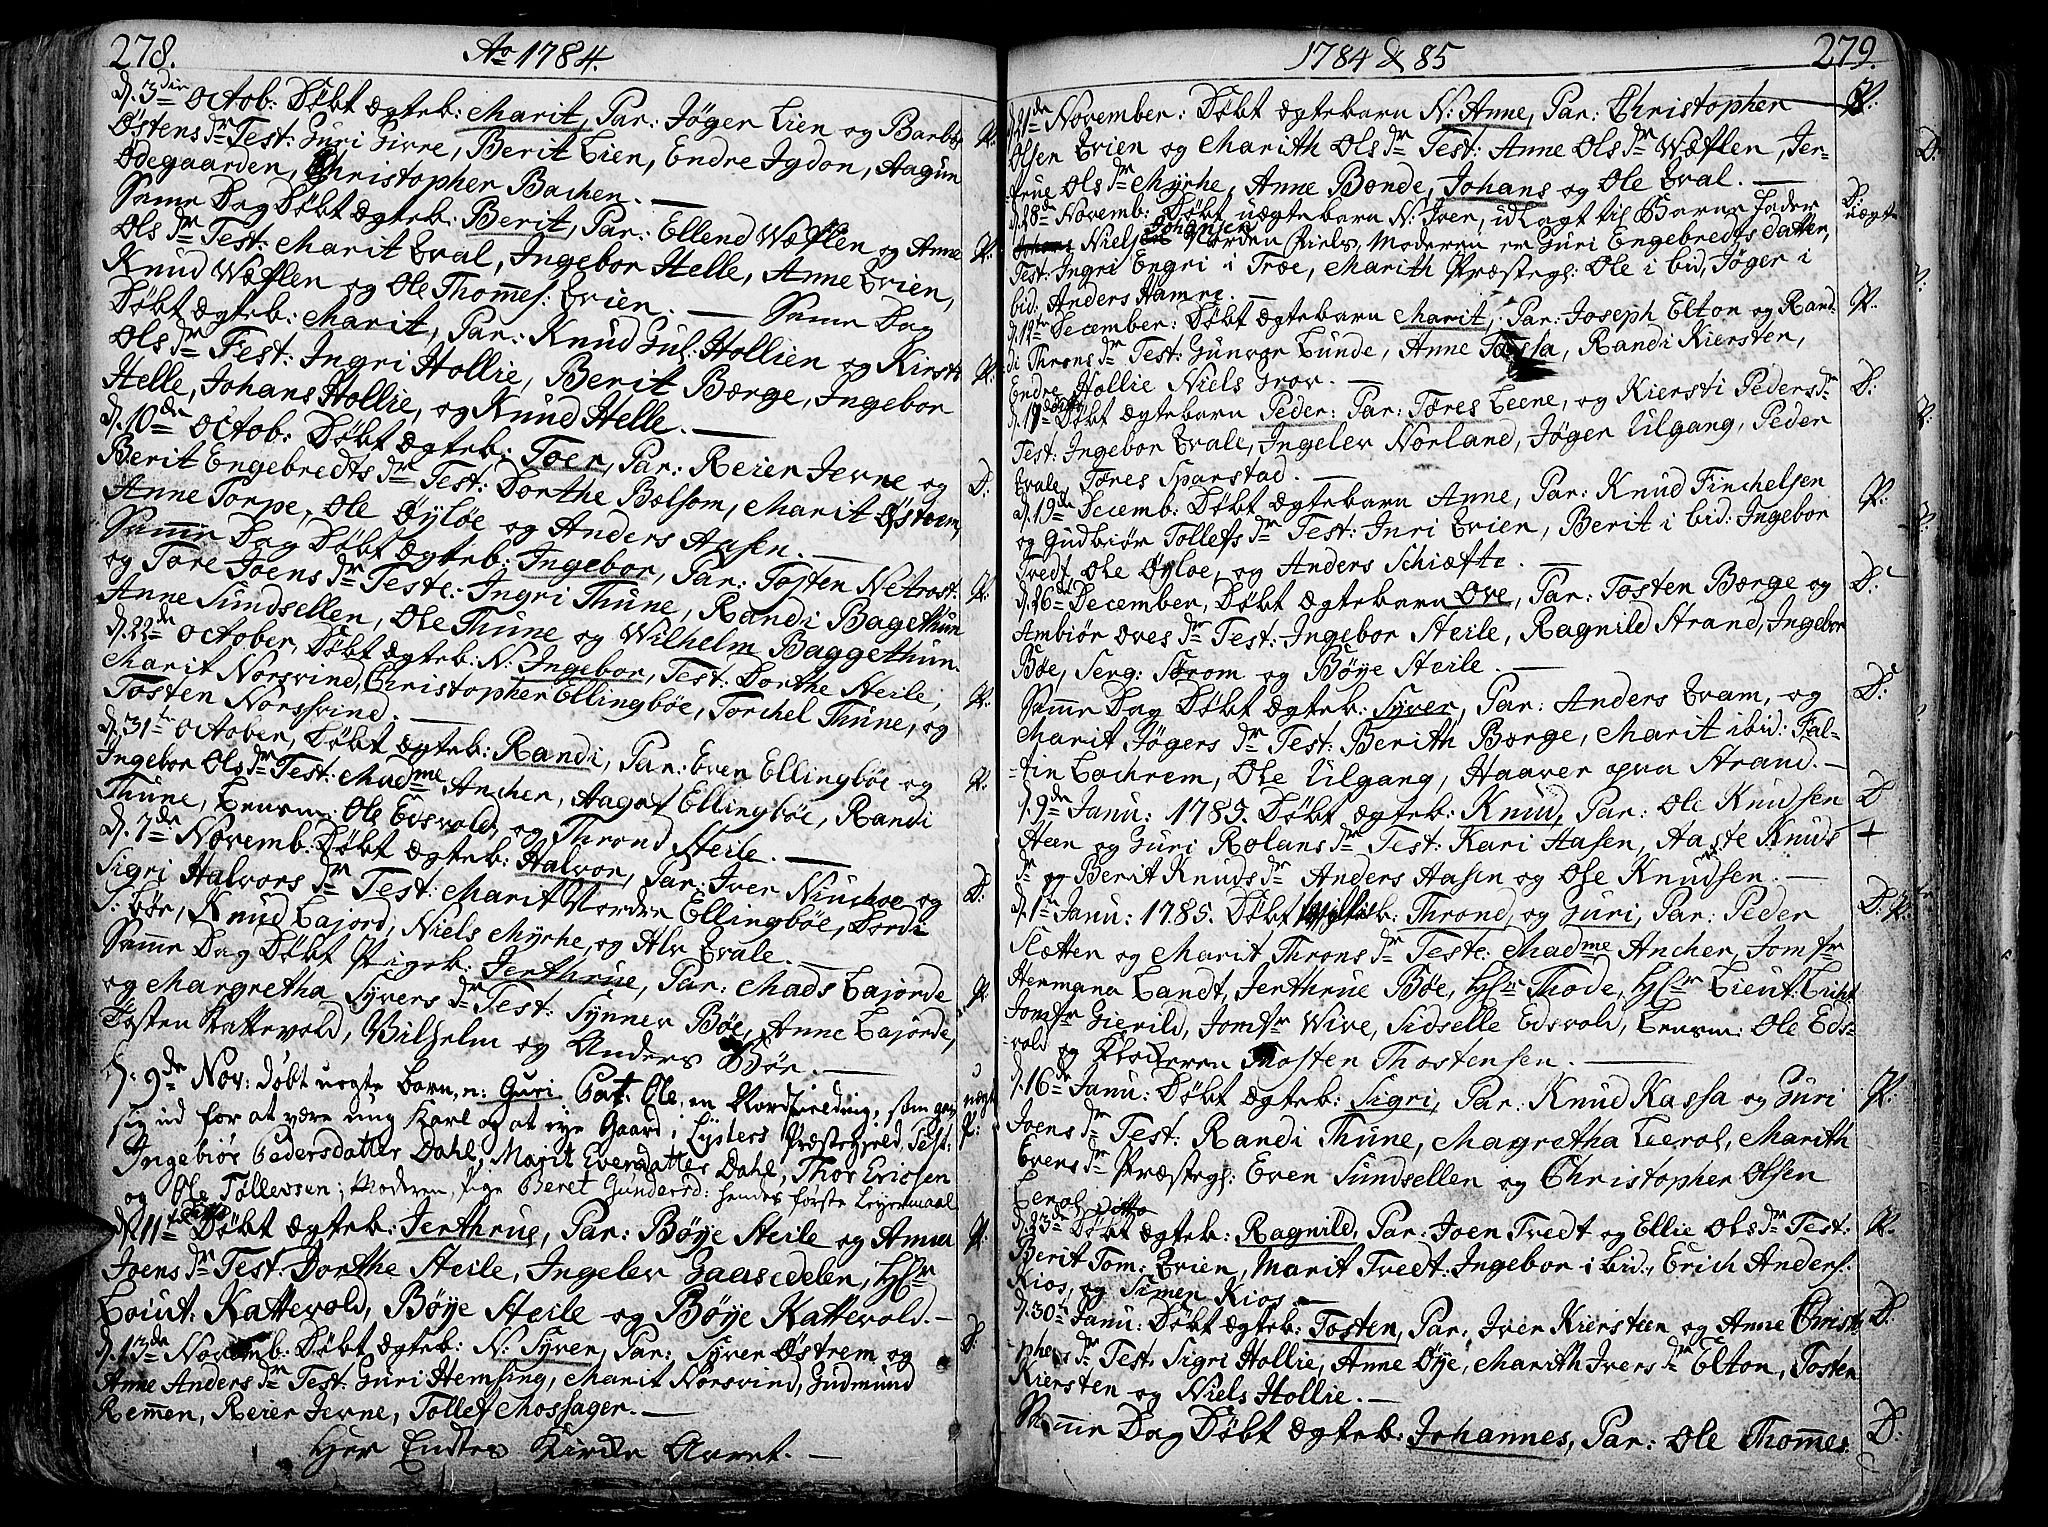 278. Ao 1784.
d. 3die Octob: Døbt ægteb: Marit, Par: Jøger Lien og Barbr P:
Østens dr Test: Guri Girre, Berit Lien, Endre Igdon, Aagun
Ødegaarden, Christopher Bachen. —
Samme Dag Døbt Ægteb: Berit, Par: Ellend Wæflen og Anne P:
Ols dr Test: Marit Qval, Ingebor Helle, Anne Qvien,
Knud Wæflen og Ole Thomes: Qvien. — Samme Dag
Døbt ægteb: Marit, Par: Knud Gul: Hollien og Kirsti P:
Ols dr Test: Ingri Hollie, Berit Børge, Ingebor
Helle, Johans Hollie, og Knud Helle. —
d. 10de Octob: Døbt Ægteb: Toer, Par: Reier Jerne og D:
Berit Engebredts dr Test: Dorthe Bolsom, Marit Østrem,
Anne Torpe, Ole Øyløe og Anders Aasen. —
Samme Dag Døbt Ægteb: Ingebor, Par: Tosten Netrost: P:
og Tore Joens dr Teste: Ingri Thune, Randi Bagethun
Anne Sundsellen, Ole Thune og Wilhelm Baggethun.
d. 22de October, Døbt Ægteb: N: Ingebor, Test: Dorthe Steile, P:
Marit Norsvind, Christopher Ellingbøe, Torchel Thune, og
Tosten Norsvind. —
d. 31te October, Døbt ægteb: Randi, Par: Even Ellingbøe og P:
Ingebor Ols dr Test: Madme Ancher, Aagot Ellingbøe, Randi
Thune, Lensm: Ole Edsvold, og Thrond Steile. —
d. 7de Novemb: Døbt Ægteb: Halvor, Par: Iver Niuchoe og D:
Sigri Halvors dr Test: Marit Nordre Ellingbøe, Dordi
S: Bør, Knud Lajord, Niels Myrhe, og Alv Qvale. —
Samme Dag Døbt Pigeb: Jerthrue, Par: Mads Lajorde P:
og Margretha Syvers dr Test: Synner Bøe, Anne Lajorde,
Tosten Kattevold, Wilhelm og Anders Bør. —
d: 9de Nov: døbt uegte barn, n: Guri Pat: Ole, en Nordfielding, som gav uegt P:
sig ud for at være ung Karl og at eye Gaard i Lysters Præstegield, Test:
Ingebiør Pedersdatter Dahl, Marit Evensdatter Dahl, Thor Ericsen
og Ole Tollevsen; Moderen, Pige Beret Gundersd: hendes første Leyermaal
d. 11te ditto Døbt ægteb: Jerthrue, Par: Bøye Steile og Anna P:
Joens dr Test: Dorthe Steile, Ingeler Gaasedelen, Hs:r
Loiut: Kattevold, Bøye Steile og Bøye Kattevold. —
d. 13de Novemb: Døbt Ægteb: N: Syver, Par: Syver Østrem og D:
Anne Anders dr Test: Guri Hemsing, Marit Norsvind, Gudmund
Remmen, Reier Jerne, Tollef Mossager. —
Her Endtes Kirke Aaret. —
1784 & 85 279.
d. 21de November: Døbt ægtebarn N: Anne, Par: Christopher P:
Olsen Qvien og Marith Ols dr Test: Anne Ols dr Wæflen, Jer-
true Ols dr Myrhe, Anne Bonde, Johans og Ole Qval. —
d. 28de Novemb: Døbt uægtebarn N: Iver, udlagt til Barne Fader D: uægte
Niels Johansen Norden Fiels, Moderen er Guri Engebredts datter,
Test: Ingri Engri i Træe, Marith Præstegs: Ole i bid, Jøger i
bid, Anders Hamre. —
d. 12te December: Døbt ægtebarn Marit, Par: Joseph Elton og Ran- P:
di Throns dr Test: Gunvor Lunde, Anne Tassa, Randi Kiersten,
Endre Hollie Niels Grov. —
d. 17de ditto Døbt ægtebarn Peder: Par: Tøres Leene, og Kiersti Peders dr D:
Test: Ingebor Qvale, Ingeler Norland, Jøger Ulgang, Peder
Qvale, Tøres Sparstad. —
d. 19de Decemb: Døbt Ægtebarn Anne, Par: Knud Finchelsen P:
og Gudbiør Tollefs dr Test: Inri Qvien, Berit i bid: Ingebor
Tredt, Ole Øyloe, og Anders Schiæfte. —
d. 26de December, Døbt Ægtebarn Ove, Par: Tosten Børge og D:
Ambiør Oves dr Test: Ingebor Steile, Ragnild Strand, Ingebor
Bøe, Serg: Strom og Bøye Steile. —
Samme Dag Døbt Ægteb: Syver, Par: Anders Qvam, og D:
Marit Jøgers dr Test: Berith Børge, Marit ibid: Fal-
tin Lachrem, Ole Ulgang, Haaver opva Strand. —
d. 9de Janu: 1785. Døbt ægteb: Knud, Par: Ole Knudsen D +
Heen og Guri Rolans dr Test: Kari Hasen, Aaste Knuds
dr og Berit Knuds dr Anders Hasen og Ole Knudsen. —
d. 1te Janu: 1785. Døbt b: Thrond, og Guri, Par: Peder D: P:
Slætten og Marit Throns dr Teste: Madme Ancher, Jomfr
Hermana Landt, Jerthrue Bøe, Hs:r Thode, Hs:r Lieut:
Jomfr Gierild, Jomfr Wive, Sidselle Edsvold, Lensm: Ole Eds-
vold og Thosten Thostensen. —
d. 16de Janu: Døbt Ægteb: Sigri, Par: Knud Kassa og Guri P:
Joens dr Test: Randi Thune, Magretha Lerol, Marith
Evens dr Præstegs: Even Sundsellen og Christopher Olsen
Lerol
d. 23de ditto Døbt ægteb: Ragnild, Par: Joen Tvedt og Ellie Ols dr Test: P:
Berit Tom: Qvien, Marit Tvedt: Ingebor i bid:, Erich Anders:
Kios, og Simen Kios. —
d. 30te Janu: Døbt Ægteb: Tosten, Par: Iver Kiersteen og Anne Christo- D:
phers dr Test: Sigri Hollie, Anne Øye, Marith Ivers dr Elton, Tosten
Kiersten og Niels Hollie. —
Samme Dag Døbt Ægteb: Johannes, Par: Ole Thommes. D: